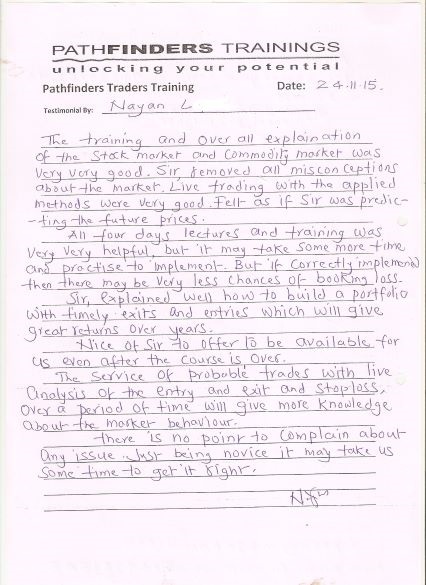 PATHFINDERS TRAININGS
unlocking your potential
Pathfinders Traders Training Date: 24.11.15.
Testimonial By: Nayan L
The training and over all explaination
of the Stock market and Commodity market was
very very good. Sir, removed all misconceptions
about the market. Live trading with the applied
methods were very good. Felt as if Sir was predic-
-ting the future prices.
All four days lectures and training was
very very helpful, but it may take some more time
and practise to implement. But if correctly implemend
then there may be very less chances of booking loss.
Sir, explained well how to build a portfolio
with timely exits and entries which will give
great returns over years.
Nice of Sir to offer to be available for
us even after the course is over.
The service of probable trades with live
analysis of the entry and exit and stoploss,
over a period of time will give more knowledge
about the market behaviour.
There is no point to complain about
any issue. Just being novice it may take us
some time to get it right.